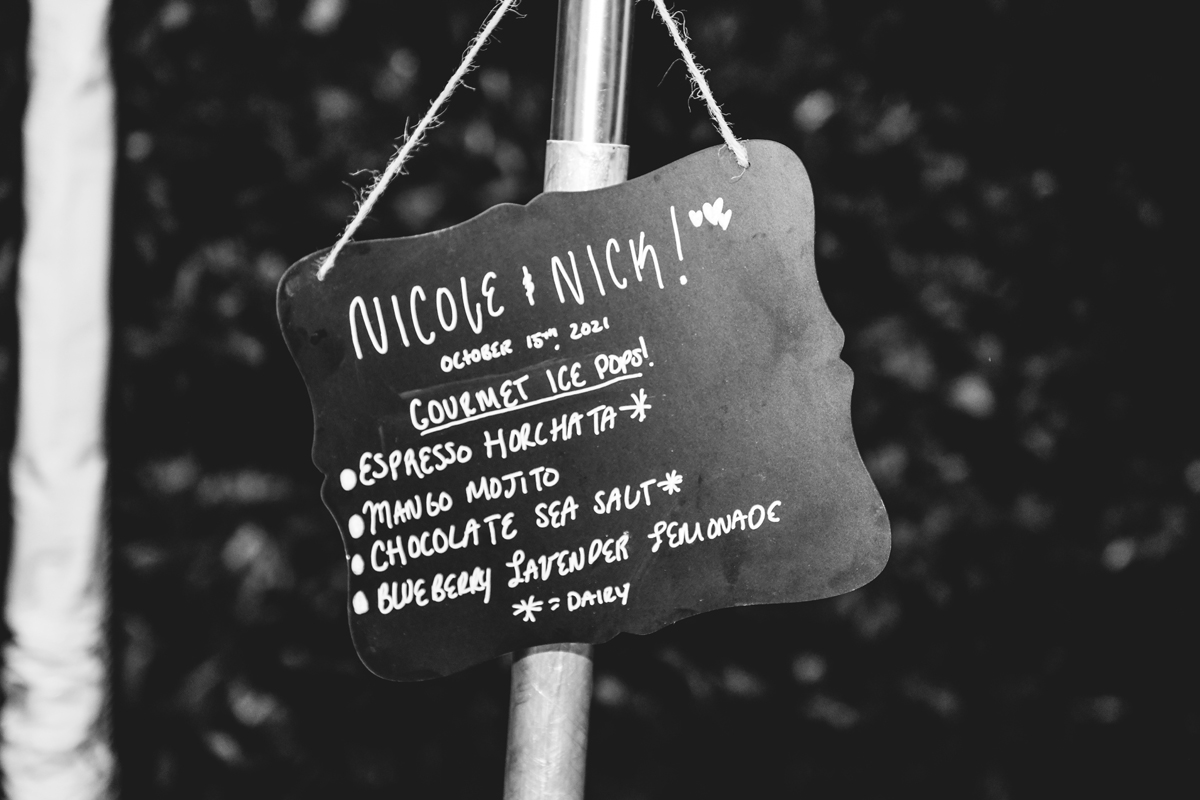 NICOLE & NICK!
OCTOBER 15TH, 2021
GOURMET ICE POPS!
• ESPRESSO HORCHATA *
• MANGO MOJITO
• CHOCOLATE SEA SALT *
• BLUEBERRY LAVENDER LEMONADE
* = DAIRY